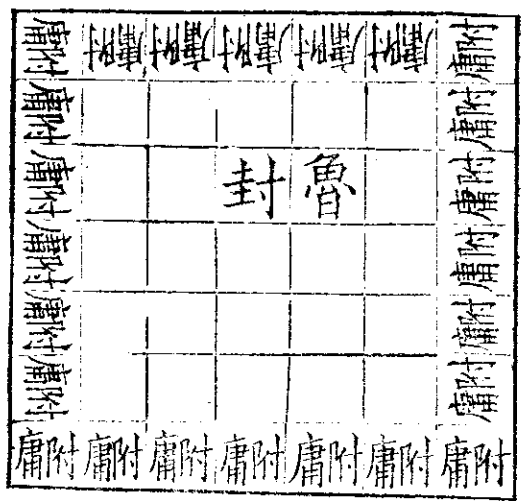 附庸 附庸 附庸 附庸 附庸 附庸 附庸
附庸 附庸
附庸 魯封 附庸
附庸 附庸
附庸 附庸
附庸 附庸
附庸 附庸 附庸 附庸 附庸 附庸 附庸